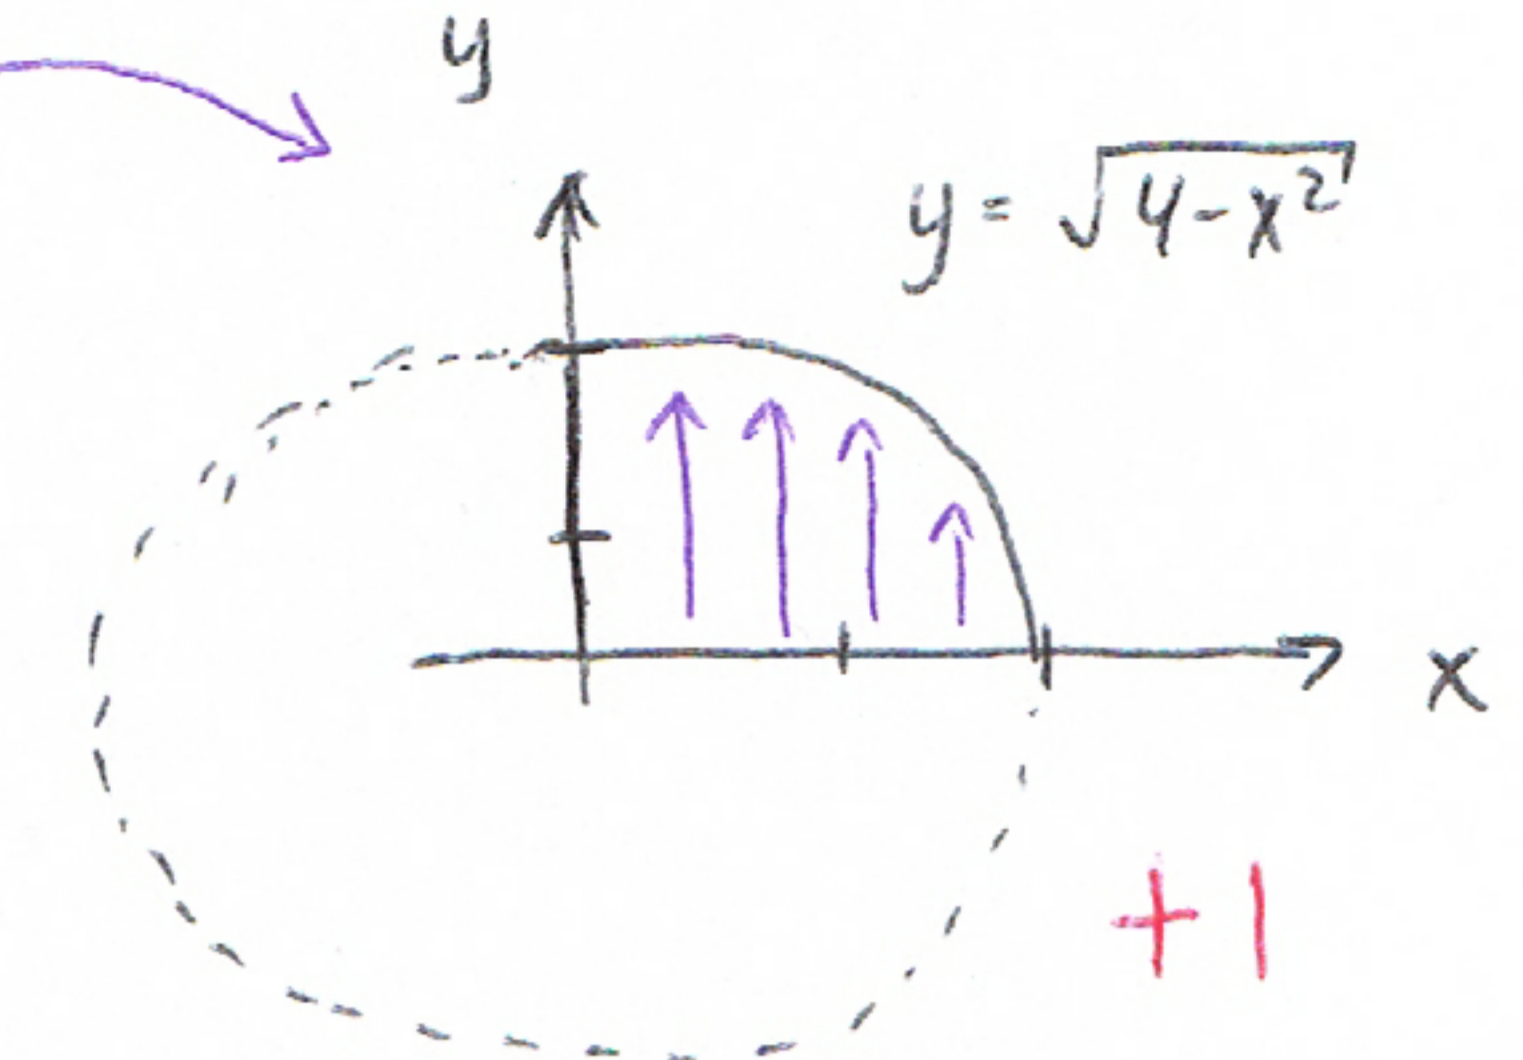 y
y = √4-x²
x
+1